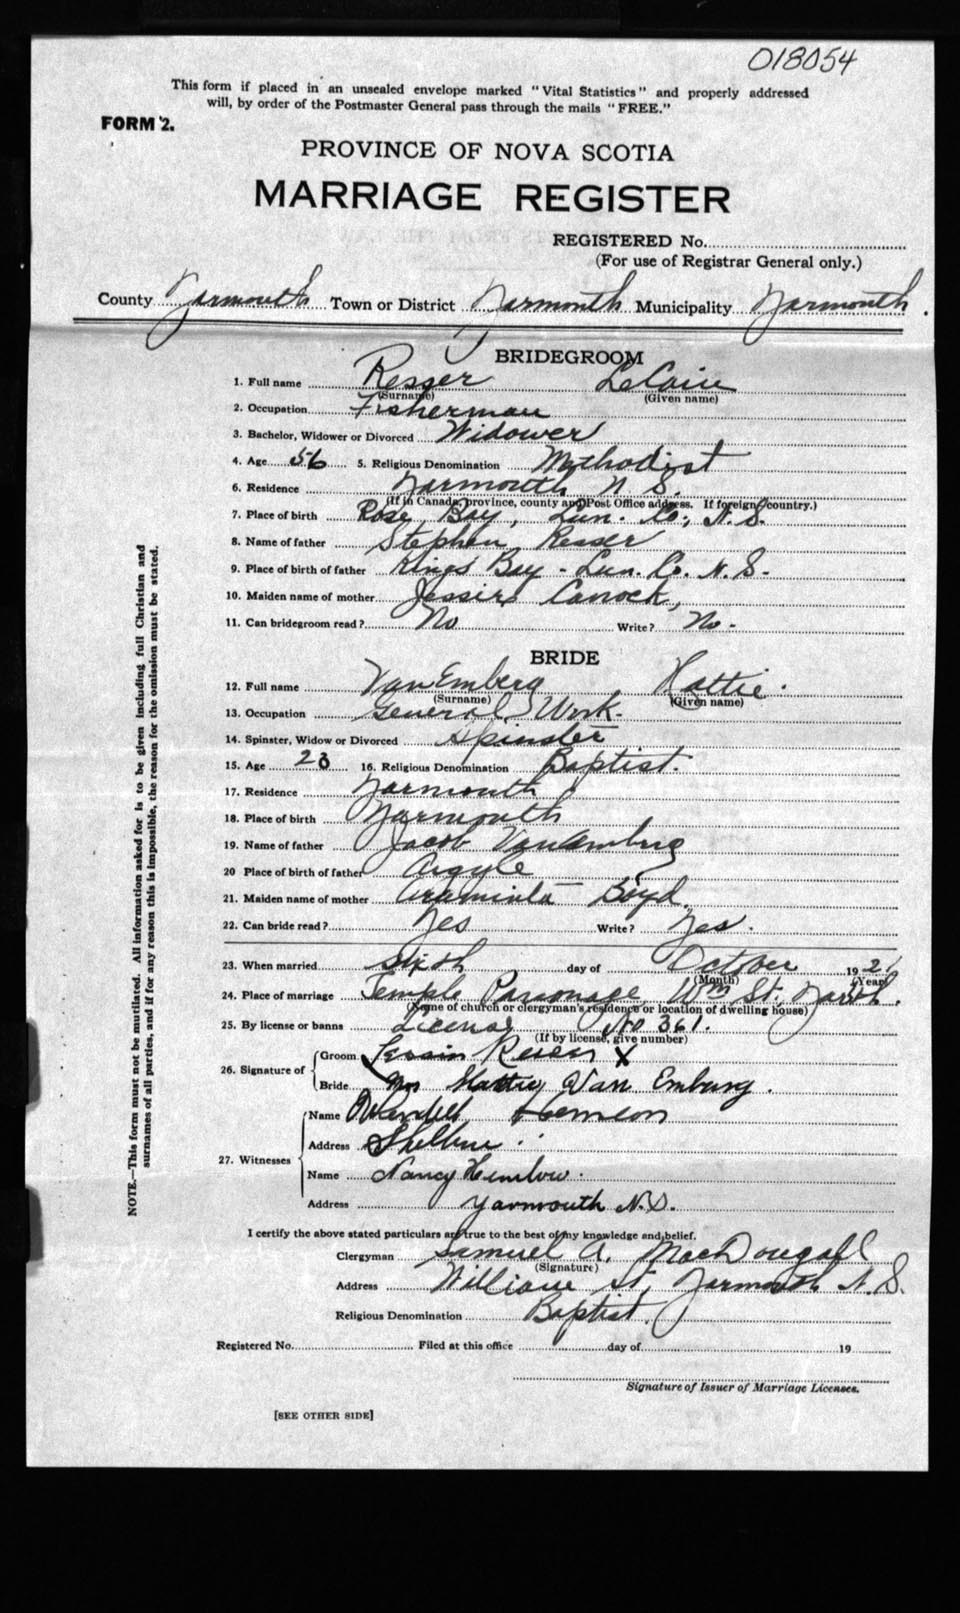 018054
This form if placed in an unsealed envelope marked "Vital Statistics" and properly addressed
will, by order of the Postmaster General pass through the mails "FREE."
FORM 2.
PROVINCE OF NOVA SCOTIA
MARRIAGE REGISTER
REGISTERED No.
(For use of Registrar General only.)
County Yarmouth Town or District Yarmouth Municipality Yarmouth
BRIDEGROOM
1. Full name Resser LeCain
(Surname) (Given name)
2. Occupation Fisherman
3. Bachelor, Widower or Divorced Widower
4. Age 56 5. Religious Denomination Methodist
6. Residence Yarmouth N. S.
(If in Canada, province, county and Post Office address. If foreign, country.)
7. Place of birth Rose Bay, Lun. Co., N. S.
8. Name of father Stephen Resser
9. Place of birth of father Kings Bay - Lun. Co. N. S.
10. Maiden name of mother Canock,
11. Can bridegroom read? No Write? No.
BRIDE
12. Full name VanEmberg Hattie.
(Surname) (Given name)
13. Occupation General Work.
14. Spinster, Widow or Divorced Spinster
15. Age 23 16. Religious Denomination Baptist.
17. Residence Yarmouth
18. Place of birth Yarmouth
19. Name of father Jacob VanAmburg
20 Place of birth of father Argyle
21. Maiden name of mother Araminta Boyd.
22. Can bride read? Yes Write? Yes.
23. When married Sixth day of October 1921
(Month) (Year)
24. Place of marriage Temple Parsonage, Wm St., Yarmth.
(Name of church or clergyman's residence or location of dwelling house)
25. By license or banns License No 361.
(If by license, give number)
26. Signature of Groom X
Bride Hattie Van Emburg.
27. Witnesses Name Wendell
Address Shelburne
Name Nancy
Address Yarmouth N.S.
I certify the above stated particulars are true to the best of my knowledge and belief.
Clergyman Samuel A. MacDougall
(Signature)
Address William St, Yarmouth N. S.
Religious Denomination Baptist.
Registered No. Filed at this office day of 19
Signature of Issuer of Marriage Licenses.
[SEE OTHER SIDE]
NOTE.—This form must not be mutilated. All information asked for is to be given including full Christian and
surnames of all parties, and if for any reason this is impossible, the reason for the omission must be stated.